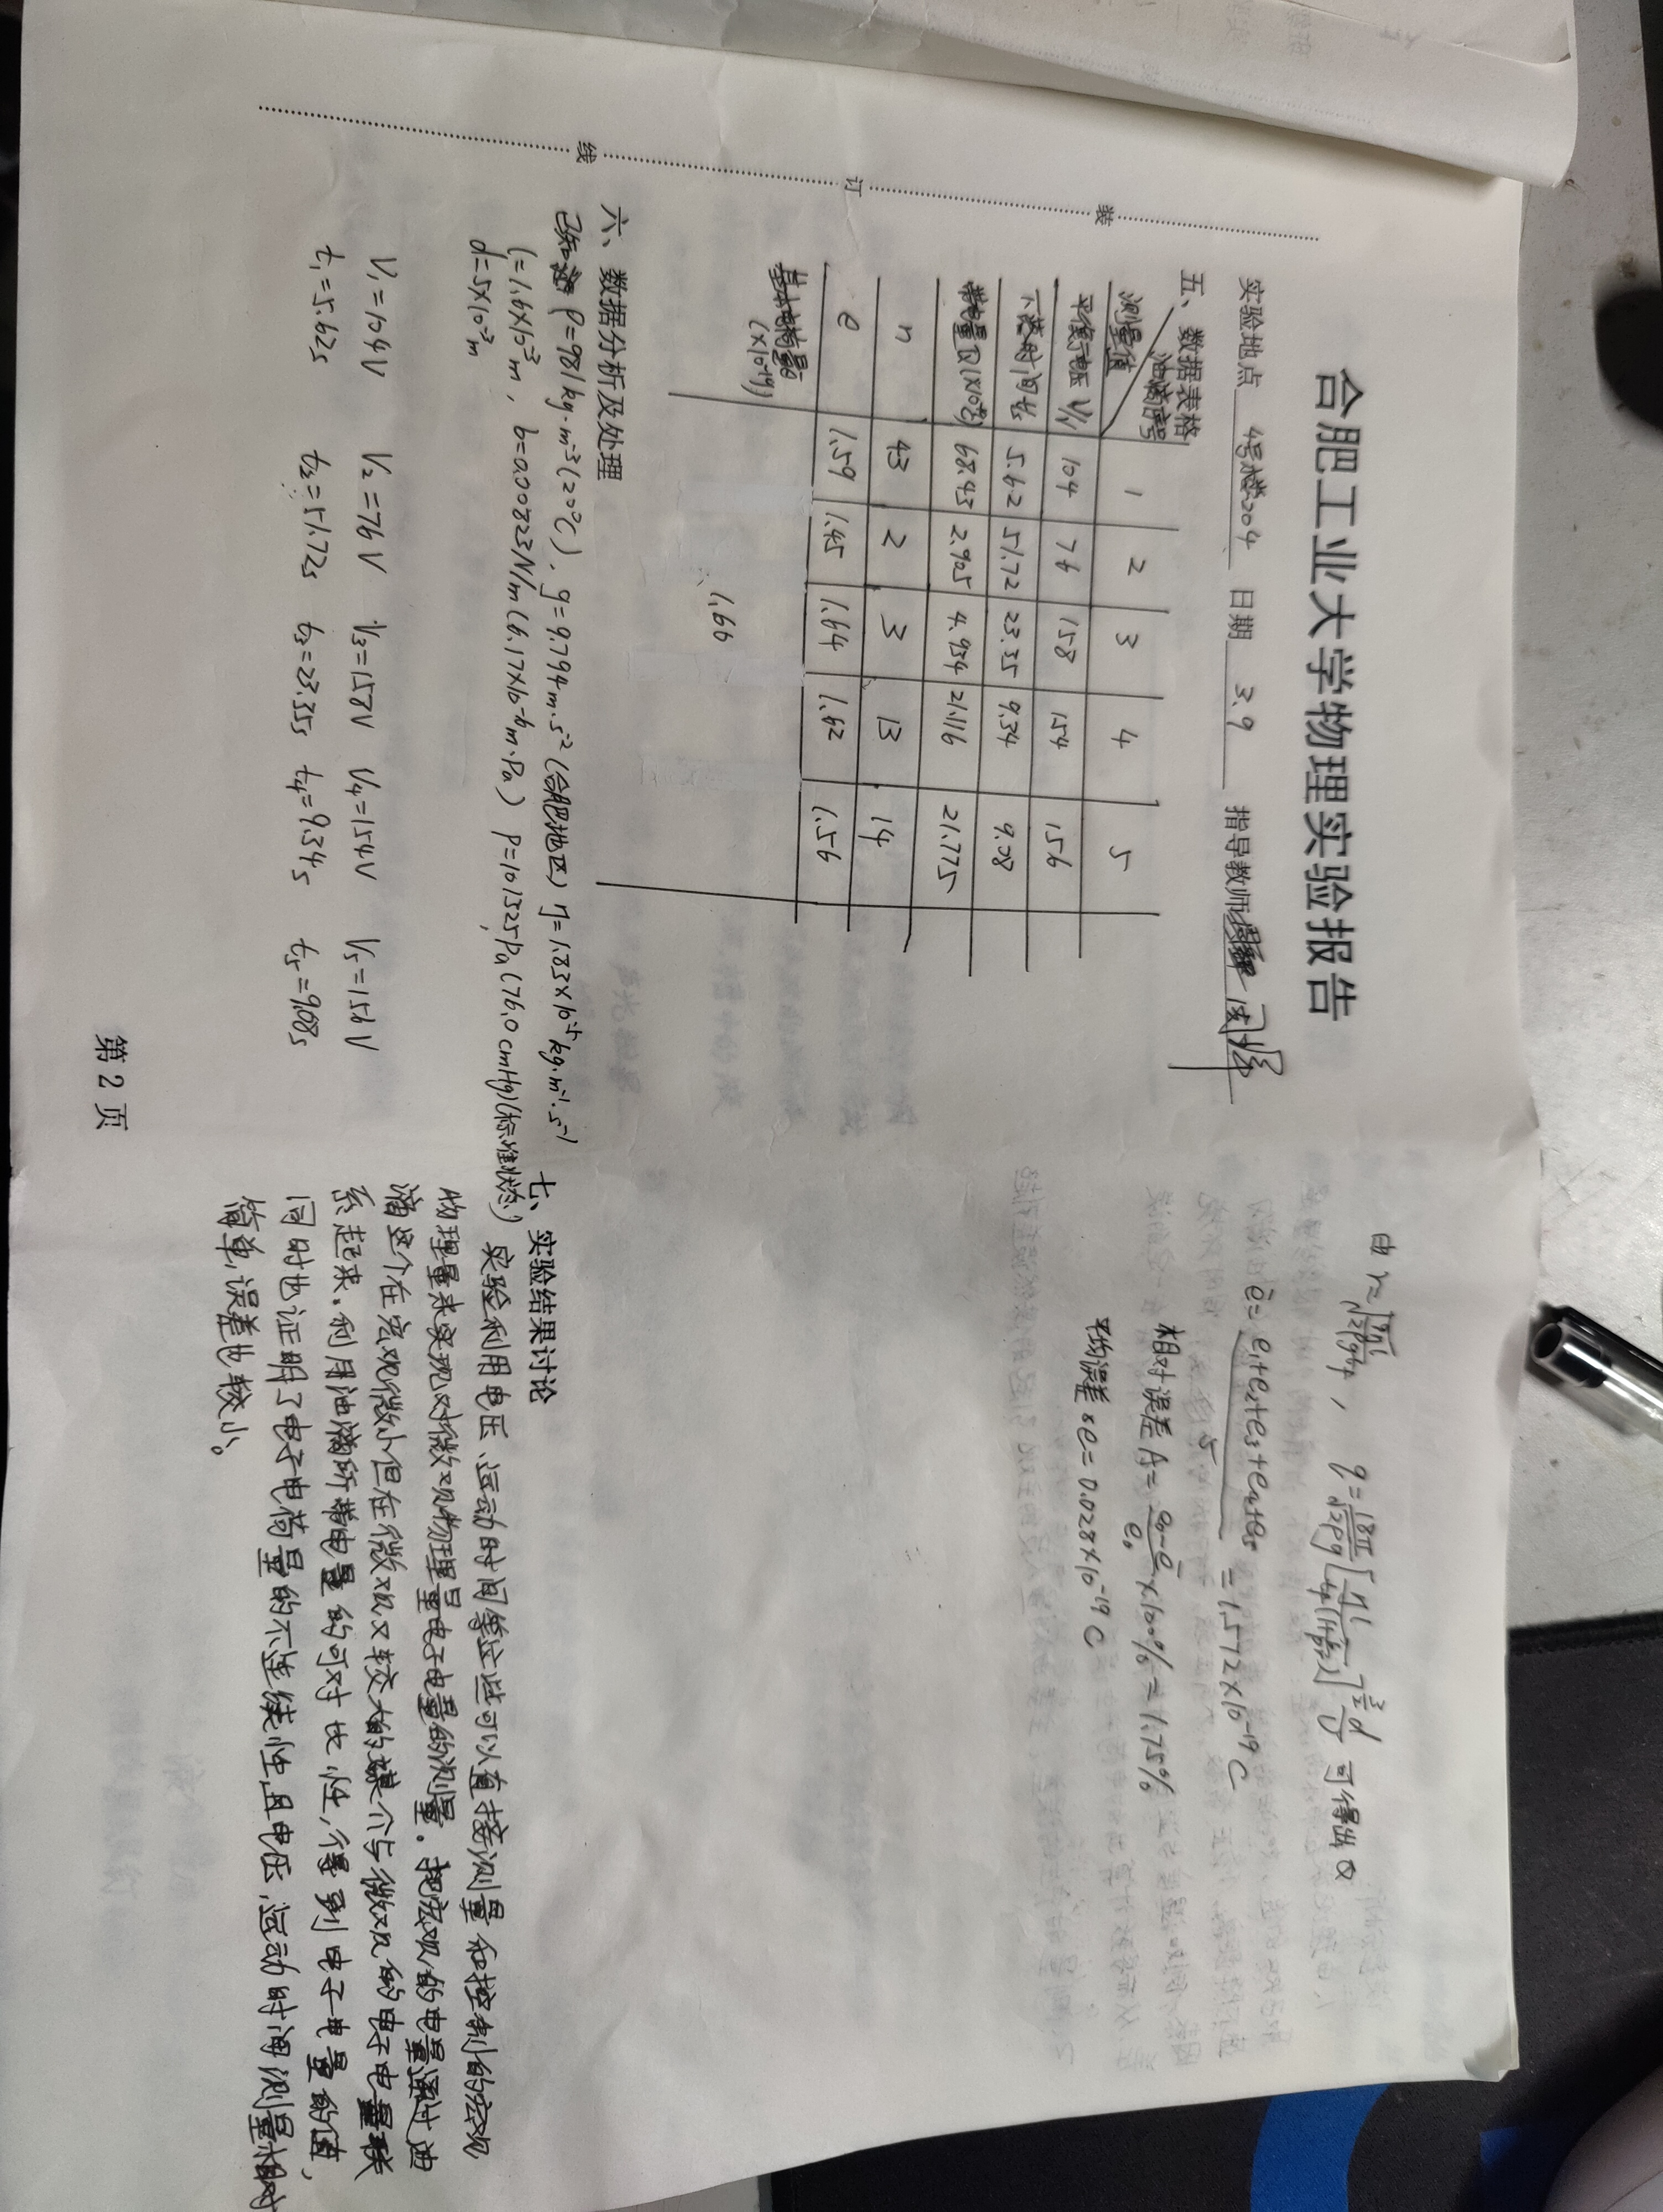 合肥工业大学物理实验报告
实验地点 4号楼204 日期 3.9 指导教师 周择
五、数据表格
油滴序号 1 2 3 4 5
测量值
平衡电压 V/V 104 76 158 154 156
下落时间 t/s 5.62 51.72 23.35 9.34 9.08
带电量Q 68.43 2.905 4.934 21.116 21.775
n 43 2 3 13 14
e 1.59 1.45 1.64 1.62 1.56
基本电荷量e
(×10⁻¹⁹)
1.60
六、数据分析及处理
已知 ρ=981kg·m⁻³(20°C), g=9.794m·s⁻²(合肥地区) η=1.83×10⁻⁵kg·m⁻¹·s⁻¹
l=1.6×10⁻³m, b=0.00823N/m(6.17×10⁻⁶m·Pa) P=101325Pa(76.0cmHg)(标准状态)
d=5×10⁻³m
V₁=104V V₂=76V V₃=158V V₄=154V V₅=156V
t₁=5.62s t₂=51.72s t₃=23.35s t₄=9.34s t₅=9.08s
装
订
线
由 r=√(9ηl/2ρgt_f), q=18π/√(2ρg)[ηl/t_f(1+b/pr)]^(3/2) d/U 可得出Q
ē=(e₁+e₂+e₃+e₄+e₅)/5=1.572×10⁻¹⁹C
相对误差A=(e₀-ē)/e₀×100%=1.75%
平均误差 e=0.028×10⁻¹⁹C
七、实验结果讨论
实验利用电压、运动时间等这些可以直接测量和控制的宏观
物理量来实现对微观物理量电子电量的测量。把宏观的电量通过油
滴这个在宏观微小但在微观又较大的媒介与微观的电子电量联
系起来。利用油滴所带电量的可对比性,得到电子电量的值,
同时也证明了电子电荷量的不连续性,且电压,运动时间测量相对
简单,误差也较小。
第 2 页